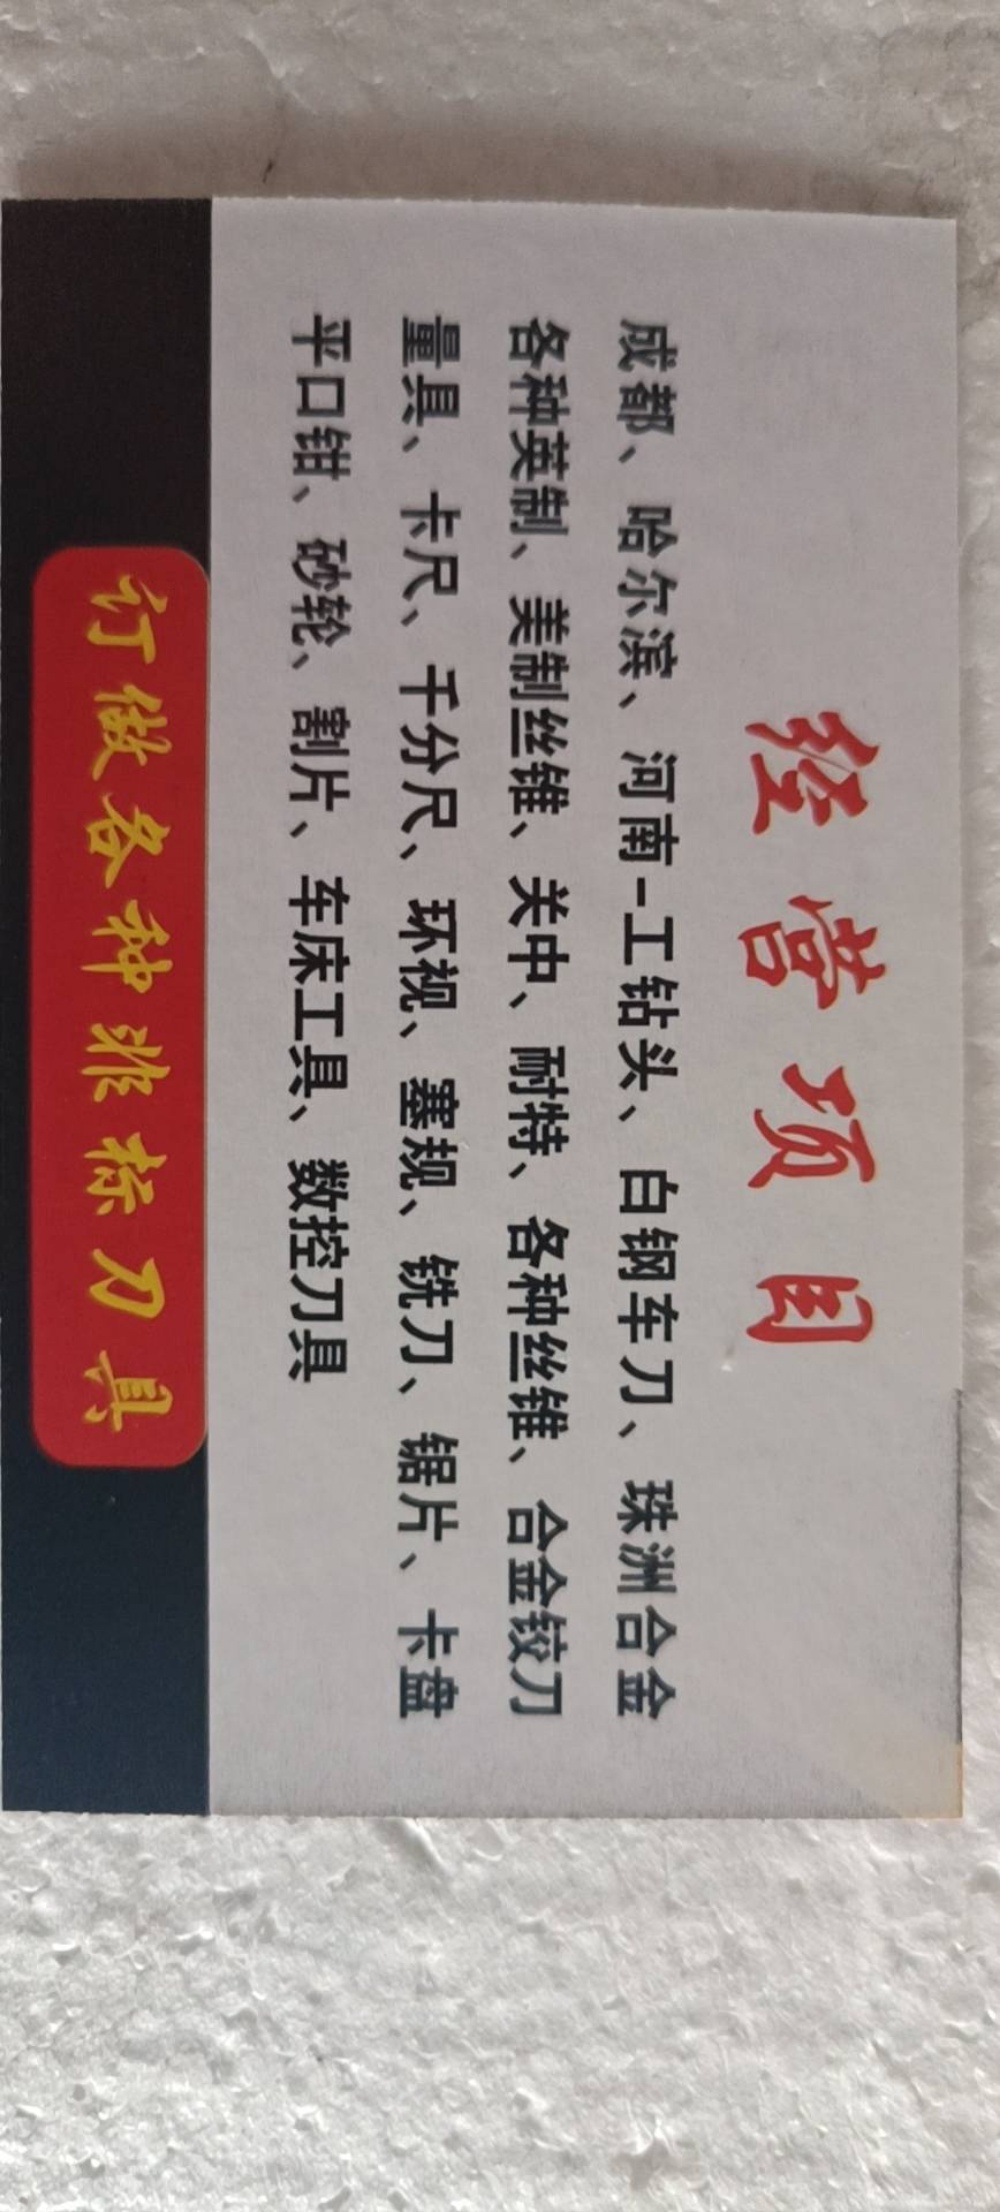 经营项目
成都、哈尔滨、河南-工钻头、白钢车刀、珠洲合金
各种英制、美制丝锥、关中、耐特、各种丝锥、合金铰刀
量具、卡尺、千分尺、环视、塞规、铣刀、锯片、卡盘
平口钳、砂轮、割片、车床工具、数控刀具
订做各种非标刀具